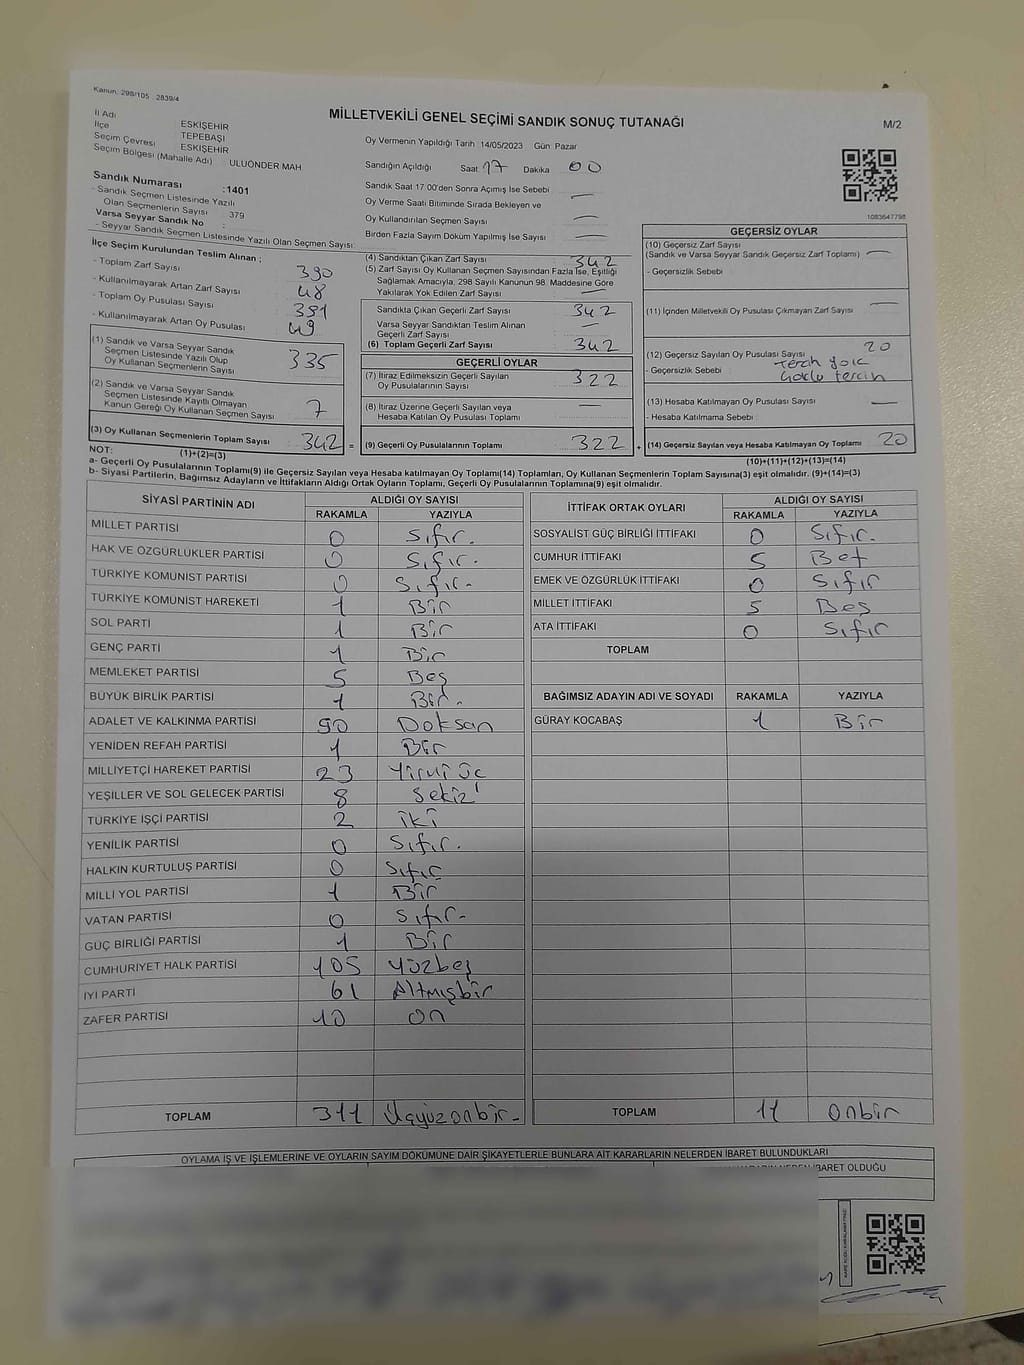 Kanun: 298/105 , 2839/4
MİLLETVEKİLİ GENEL SEÇİMİ SANDIK SONUÇ TUTANAĞI
M/2
İl Adı : ESKİŞEHİR
İlçe : TEPEBAŞI
Seçim Çevresi : ESKİŞEHİR
Seçim Bölgesi (Mahalle Adı) : ULUÖNDER MAH
Oy Vermenin Yapıldığı Tarih 14/05/2023 Gün Pazar
Sandığın Açıldığı Saat 17 Dakika 00
Sandık Numarası :1401
- Sandık Seçmen Listesinde Yazılı
Olan Seçmenlerin Sayısı : 379
Varsa Seyyar Sandık No :
- Seyyar Sandık Seçmen Listesinde Yazılı Olan Seçmen Sayısı:
Sandık Saat 17.00'den Sonra Açımış İse Sebebi
Oy Verme Saati Bitiminde Sırada Bekleyen ve
Oy Kullandırılan Seçmen Sayısı
Birden Fazla Sayım Döküm Yapılmış İse Sayısı
1083647798
İlçe Seçim Kurulundan Teslim Alınan ;
- Toplam Zarf Sayısı 390
- Kullanılmayarak Artan Zarf Sayısı 48
- Toplam Oy Pusulası Sayısı 391
- Kullanılmayarak Artan Oy Pusulası 49
(1) Sandık ve Varsa Seyyar Sandık
Seçmen Listesinde Yazılı Olup
Oy Kullanan Seçmenlerin Sayısı 335
(2) Sandık ve Varsa Seyyar Sandık
Seçmen Listesinde Kayıtlı Olmayan
Kanun Gereği Oy Kullanan Seçmen Sayısı 7
(3) Oy Kullanan Seçmenlerin Toplam Sayısı 342 =
(1)+(2)=(3)
(4) Sandıktan Çıkan Zarf Sayısı 342
(5) Zarf Sayısı Oy Kullanan Seçmen Sayısından Fazla İse, Eşitliği
Sağlamak Amacıyla, 298 Sayılı Kanunun 98. Maddesine Göre
Yakılarak Yok Edilen Zarf Sayısı
Sandıkta Çıkan Geçerli Zarf Sayısı 342
Varsa Seyyar Sandıktan Teslim Alınan
Geçerli Zarf Sayısı
(6) Toplam Geçerli Zarf Sayısı 342
GEÇERLİ OYLAR
(7) İtiraz Edilmeksizin Geçerli Sayılan
Oy Pusulalarının Sayısı 322
(8) İtiraz Üzerine Geçerli Sayılan veya
Hesaba Katılan Oy Pusulası Toplamı
(9) Geçerli Oy Pusulalarının Toplamı 322 +
GEÇERSİZ OYLAR
(10) Geçersiz Zarf Sayısı
(Sandık ve Varsa Seyyar Sandık Geçersiz Zarf Toplamı)
- Geçersizlik Sebebi
(11) İçinden Milletvekili Oy Pusulası Çıkmayan Zarf Sayısı
(12) Geçersiz Sayılan Oy Pusulası Sayısı 20
- Geçersizlik Sebebi Tercih yok
Çoklu tercih
(13) Hesaba Katılmayan Oy Pusulası Sayısı
- Hesaba Katılmama Sebebi
(14) Geçersiz Sayılan veya Hesaba Katılmayan Oy Toplamı 20
(10)+(11)+(12)+(13)=(14)
NOT:
a- Geçerli Oy Pusulalarının Toplamı(9) ile Geçersiz Sayılan veya Hesaba katılmayan Oy Toplamı(14) Toplamları, Oy Kullanan Seçmenlerin Toplam Sayısına(3) eşit olmalıdır. (9)+(14)=(3)
b- Siyasi Partilerin, Bağımsız Adayların ve İttifakların Aldığı Ortak Oyların Toplamı, Geçerli Oy Pusulalarının Toplamına(9) eşit olmalıdır.
SİYASİ PARTİNİN ADI ALDIĞI OY SAYISI
RAKAMLA YAZIYLA
MİLLET PARTİSİ 0 Sıfır.
HAK VE ÖZGÜRLÜKLER PARTİSİ 0 Sıfır.
TÜRKİYE KOMÜNİST PARTİSİ 0 Sıfır.
TÜRKİYE KOMÜNİST HAREKETİ 1 Bir
SOL PARTİ 1 Bir
GENÇ PARTİ 1 Bir
MEMLEKET PARTİSİ 5 Beş
BÜYÜK BİRLİK PARTİSİ 1 Bir.
ADALET VE KALKINMA PARTİSİ 90 Doksan
YENİDEN REFAH PARTİSİ 1 Bir
MİLLİYETÇİ HAREKET PARTİSİ 23 Yirmi üç
YEŞİLLER VE SOL GELECEK PARTİSİ 8 Sekiz
TÜRKİYE İŞÇİ PARTİSİ 2 iki
YENİLİK PARTİSİ 0 Sıfır.
HALKIN KURTULUŞ PARTİSİ 0 Sıfır
MİLLİ YOL PARTİSİ 1 Bir
VATAN PARTİSİ 0 Sıfır.
GÜÇ BİRLİĞİ PARTİSİ 1 Bir
CUMHURİYET HALK PARTİSİ 105 Yüzbeş
İYİ PARTİ 61 Altmışbir
ZAFER PARTİSİ 10 On
TOPLAM 311 Üçyüzonbir.
İTTİFAK ORTAK OYLARI ALDIĞI OY SAYISI
RAKAMLA YAZIYLA
SOSYALİST GÜÇ BİRLİĞİ İTTİFAKI 0 Sıfır.
CUMHUR İTTİFAKI 5 Beş
EMEK VE ÖZGÜRLÜK İTTİFAKI 0 Sıfır
MİLLET İTTİFAKI 5 Beş
ATA İTTİFAKI 0 Sıfır
TOPLAM
BAĞIMSIZ ADAYIN ADI VE SOYADI RAKAMLA YAZIYLA
GÜRAY KOCABAŞ 1 Bir
TOPLAM 11 Onbir
OYLAMA İŞ VE İŞLEMLERİNE VE OYLARIN SAYIM DÖKÜMÜNE DAİR ŞİKAYETLERLE BUNLARA AİT KARARLARIN NELERDEN İBARET BULUNDUKLARI
İBARET OLDUĞU